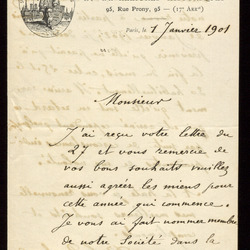 95, Rue Prony, 95 — (17e Arrt)
Paris, le 1 Janvier 1901
Monsieur
J'ai reçu votre lettre du
27 et vous remercie de
vos bons souhaits veuillez
aussi agréer les miens pour
cette année qui commence.
Je vous ai fait nommer membre
de notre Société dans la